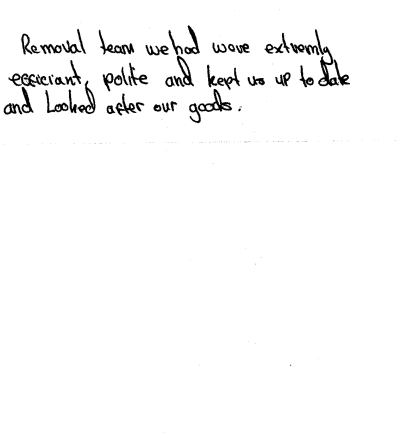 Removal team we had wove extremly
efficiant, polite and kept us up to date
and Looked after our goods.